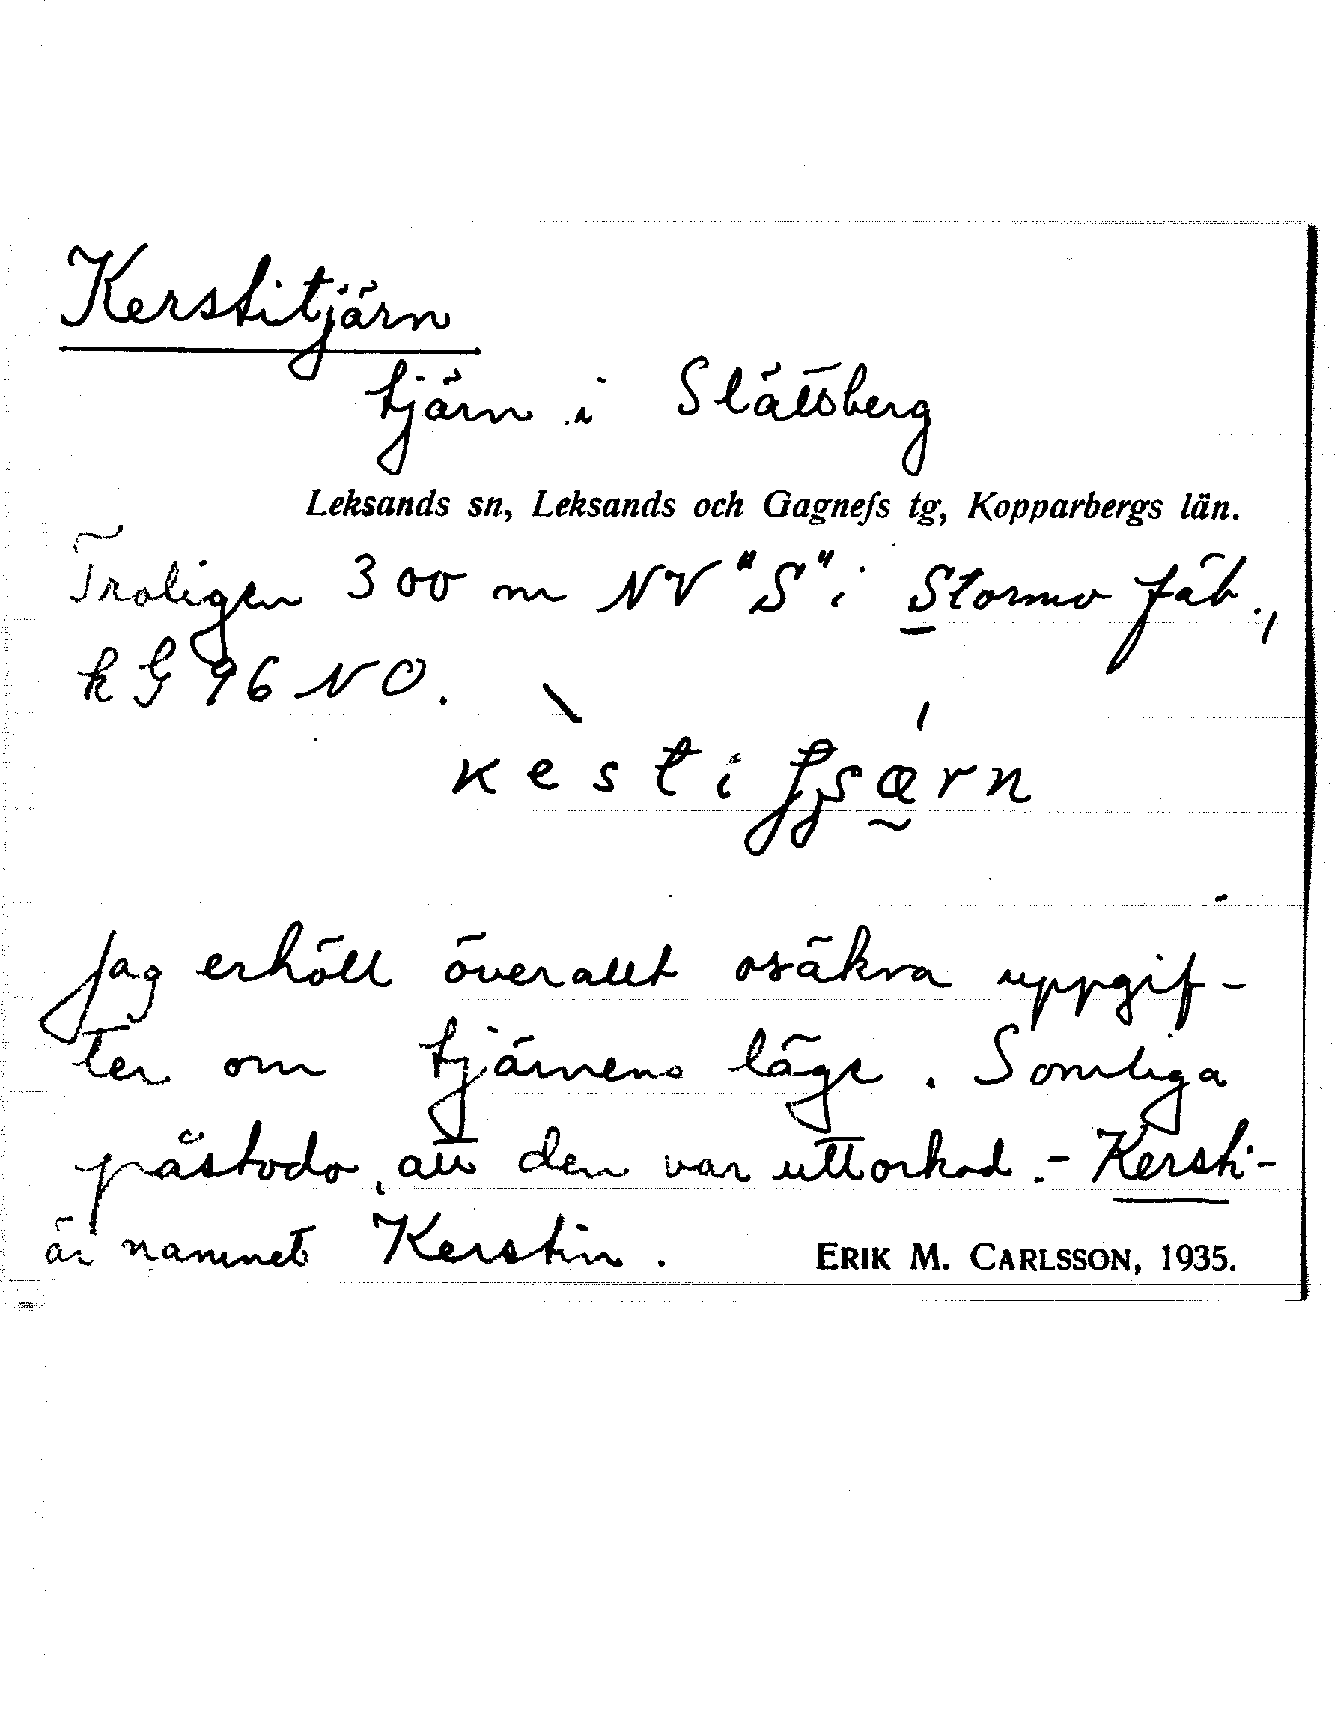 Kerstitjärn
tjärn i Slätsberg
Leksands sn, Leksands och Gagnefs tg, Kopparbergs län.
Troligen 300 m NV "S" i Stormo fäb.,
k G 96 NO.
Jag erhöll överallt osäkra uppgif-
ter om tjärnens läge. Somliga
påstodo, att den var uttorkad. - Kersti-
är namnet Kerstin.
ERIK M. CARLSSON, 1935.